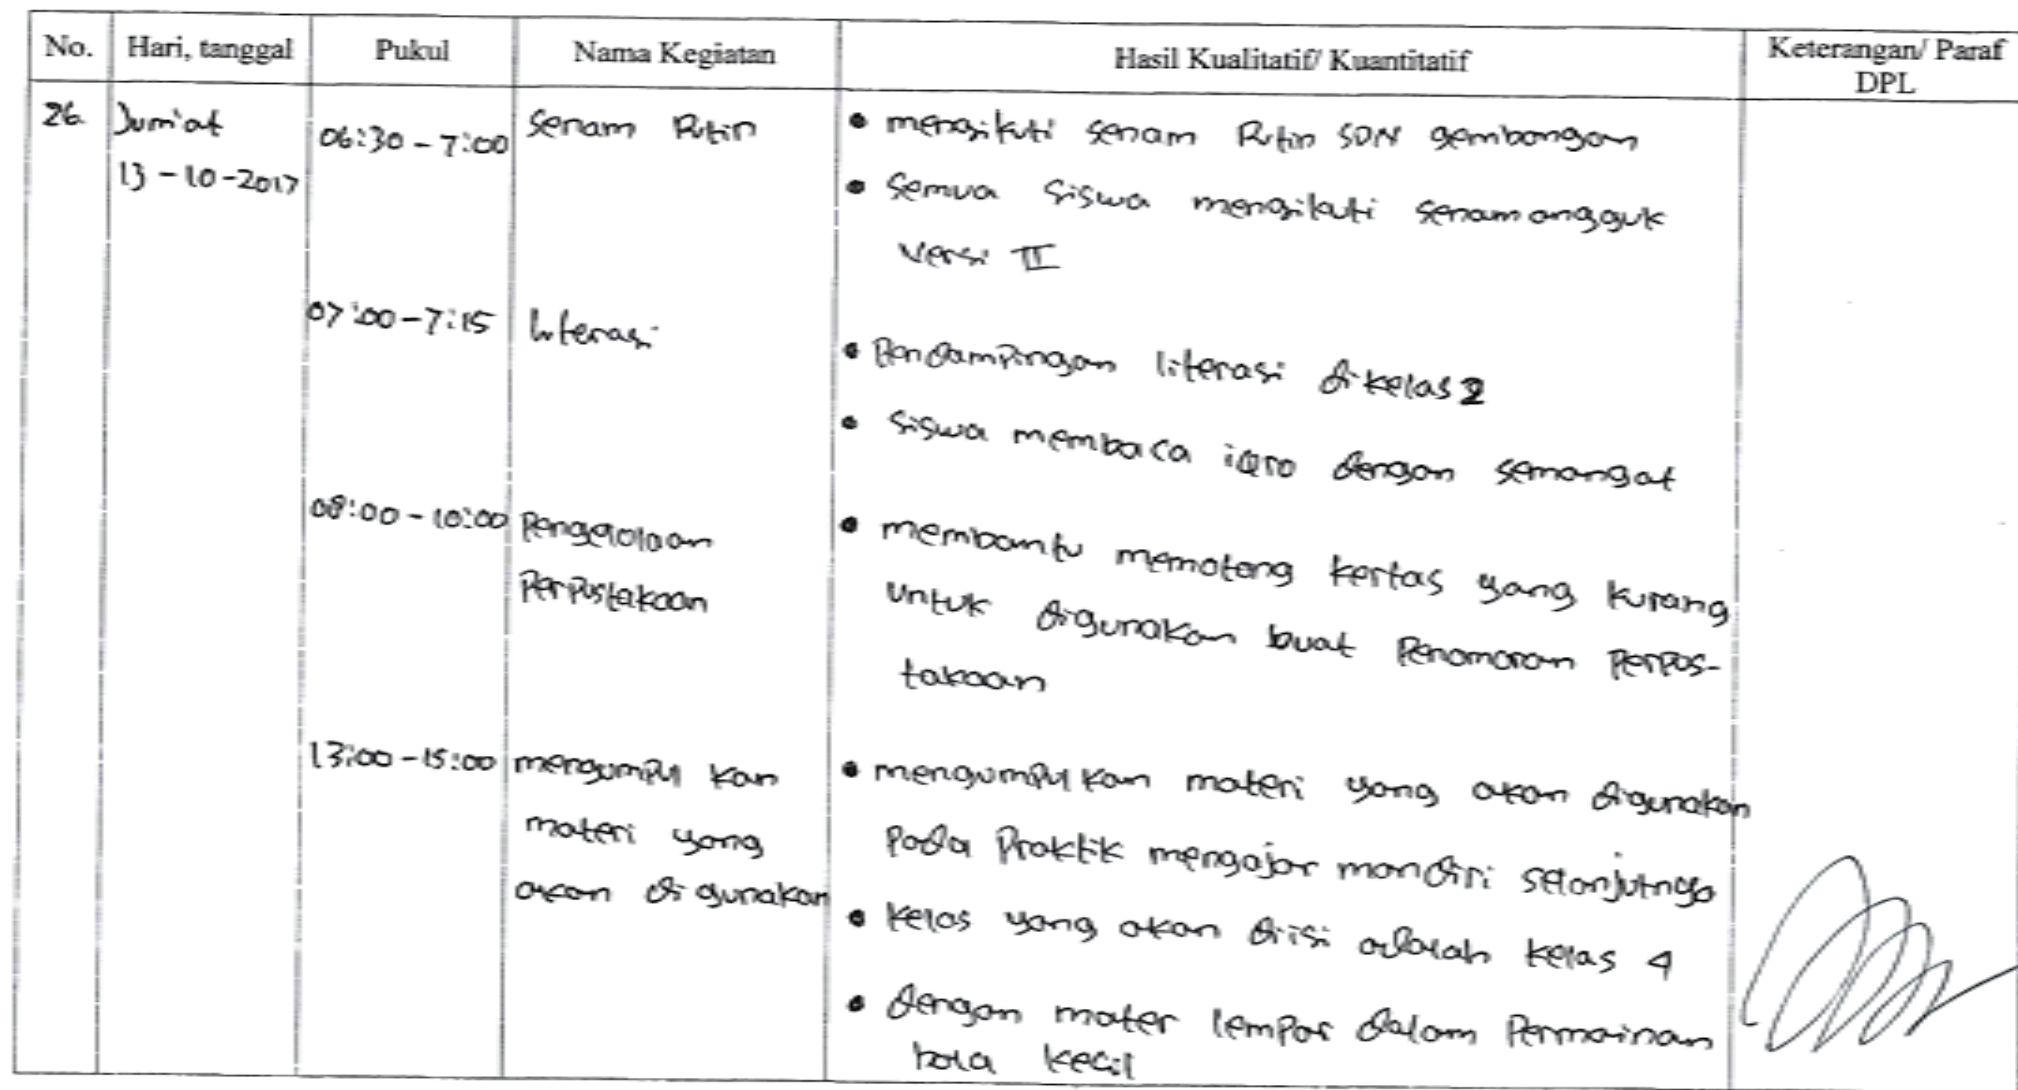 No. Hari, tanggal Pukul Nama Kegiatan Hasil Kualitatif/ Kuantitatif Keterangan/ Paraf
DPL
26. Jum'at 06:30 - 7:00 Senam Rutin • mengikuti senam Rutin SDN gembongan
13 - 10 - 2017 • Semua siswa mengikuti senam angguk
Versi II
07:00 - 7:15 literasi • Pendampingan literasi dikelas 2
• siswa membaca iqro dengan semangat
08:00 - 10:00 Pengelolaan • membantu memotong kertas yang kurang
Perpustakaan untuk digunakan buat Penomoran Perpus-
takaan
13:00 - 15:00 mengumpul kan • mengumpulkan materi yang akan digunakan
materi yang pada Praktik mengajar mandiri selanjutnya
akan di gunakan • kelas yang akan diisi adalah kelas 4
• dengan mater lempar dalam Permainan
bola kecil